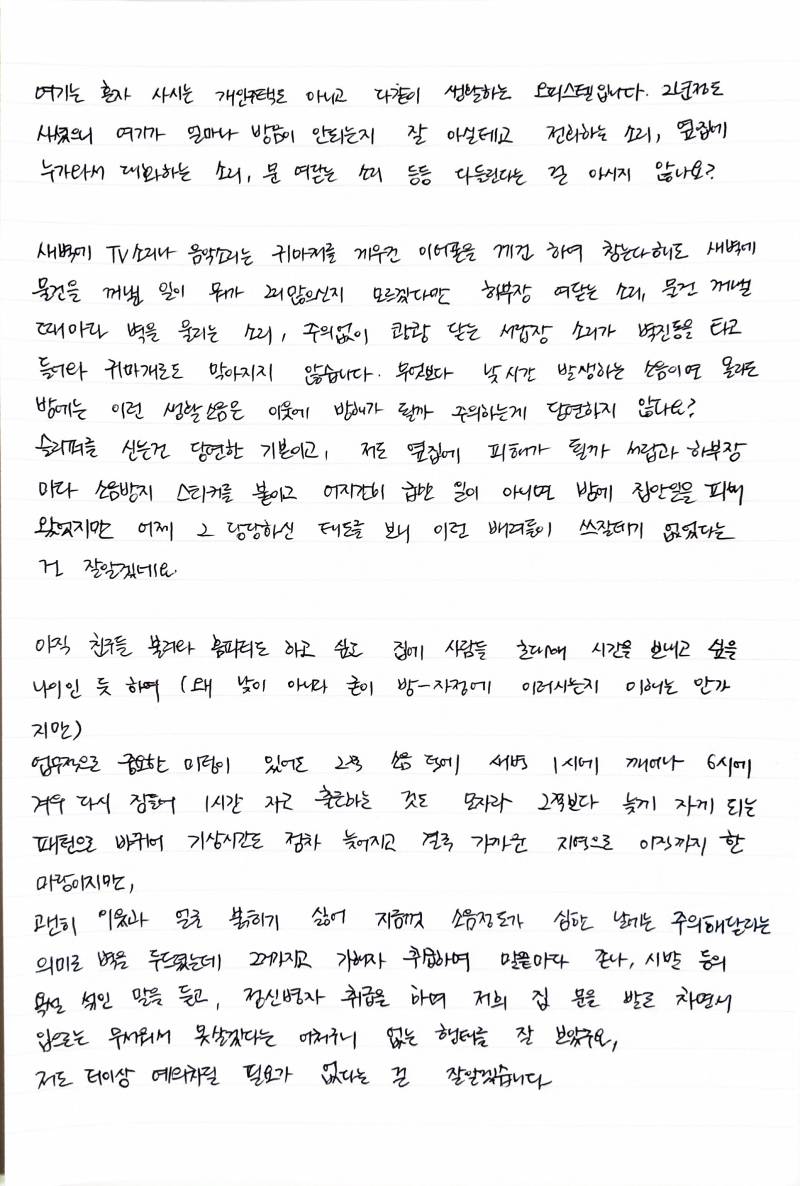 여기는 혼자 사시는 개인주택도 아니고 다같이 생활하는 오피스텔입니다. 2년정도
사셨으니 여기가 얼마나 방음이 안되는지 잘 아실테고 전화하는 소리, 옆집에
누가와서 대화하는 소리, 문 여닫는 소리 등등 다들린다는 걸 아시지 않나요?
새벽에 TV소리나 음악소리는 귀마개를 끼우건 이어폰을 끼건 하여 참는다해도 새벽에
물건을 꺼낼 일이 뭐가 그리많으신지 모르겠다만 하부장 여닫는 소리, 물건 꺼낼
때마다 벽을 울리는 소리, 주의없이 쾅쾅 닫는 서랍장 소리가 벽진동을 타고
들어와 귀마개로도 막아지지 않습니다. 무엇보다 낮시간 발생하는 소음이면 몰라도
밤에는 이런 생활소음은 이웃에 방해가 될까 주의하는게 당연하지 않나요?
슬리퍼를 신는건 당연한 기본이고, 저도 옆집에 피해가 될까 서랍과 하부장
마다 소음방지 스티커를 붙이고 어지간히 급한 일이 아니면 밤에 집안일을 피해
왔었지만 어제 그 당당하신 태도를 보니 이런 배려들이 쓰잘데기 없었다는
건 잘알겠네요.
아직 친구들 불러와 홈파티도 하고 싶고 집에 사람들 초대해 시간을 보내고 싶을
나이인 듯 하여 (왜 낮이 아니라 굳이 밤-자정에 이러시는지 이해는 안가
지만)
업무적으로 중요한 미팅이 있어도 그쪽 소음 덕에 새벽 1시에 깨어나 6시에
겨우 다시 잠들어 1시간 자고 출근하는 것도 모자라 그쪽보다 늦게 자게 되는
패턴으로 바뀌어 기상시간도 점차 늦어지고 결국 가까운 지역으로 이직까지 한
마당이지만,
괜히 이웃과 얼굴 붉히기 싫어 지금껏 소음정도가 심한 날에는 주의해달라는
의미로 벽을 두드렸는데 그거가지고 가해자 취급하며 말끝마다 존나, 시발 등의
욕설 섞인 말을 듣고, 정신병자 취급을 하며 저희 집 문을 발로 차면서
입으로는 무서워서 못살겠다는 어처구니 없는 행태를 잘 보았구요,
저도 더이상 예의차릴 필요가 없다는 건 잘알겠습니다